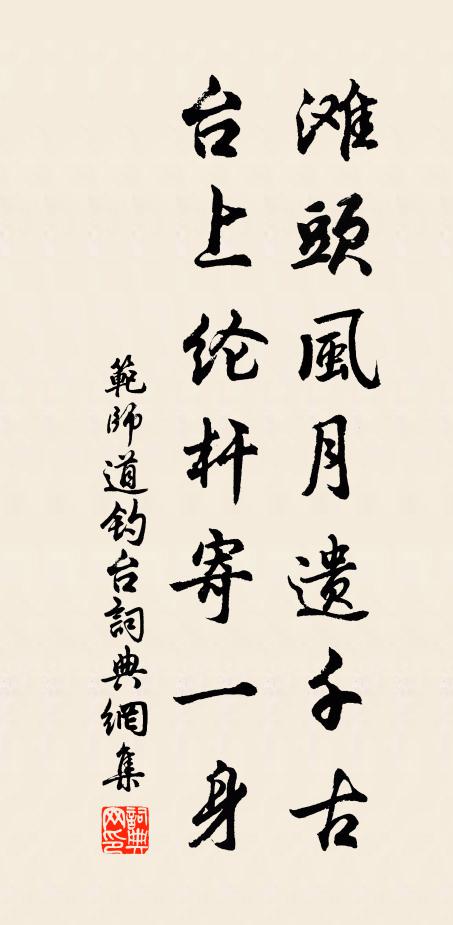 滩頭風月遗千古
台上纶杆寄一身
範師道钓台詞典網集
詞典网印